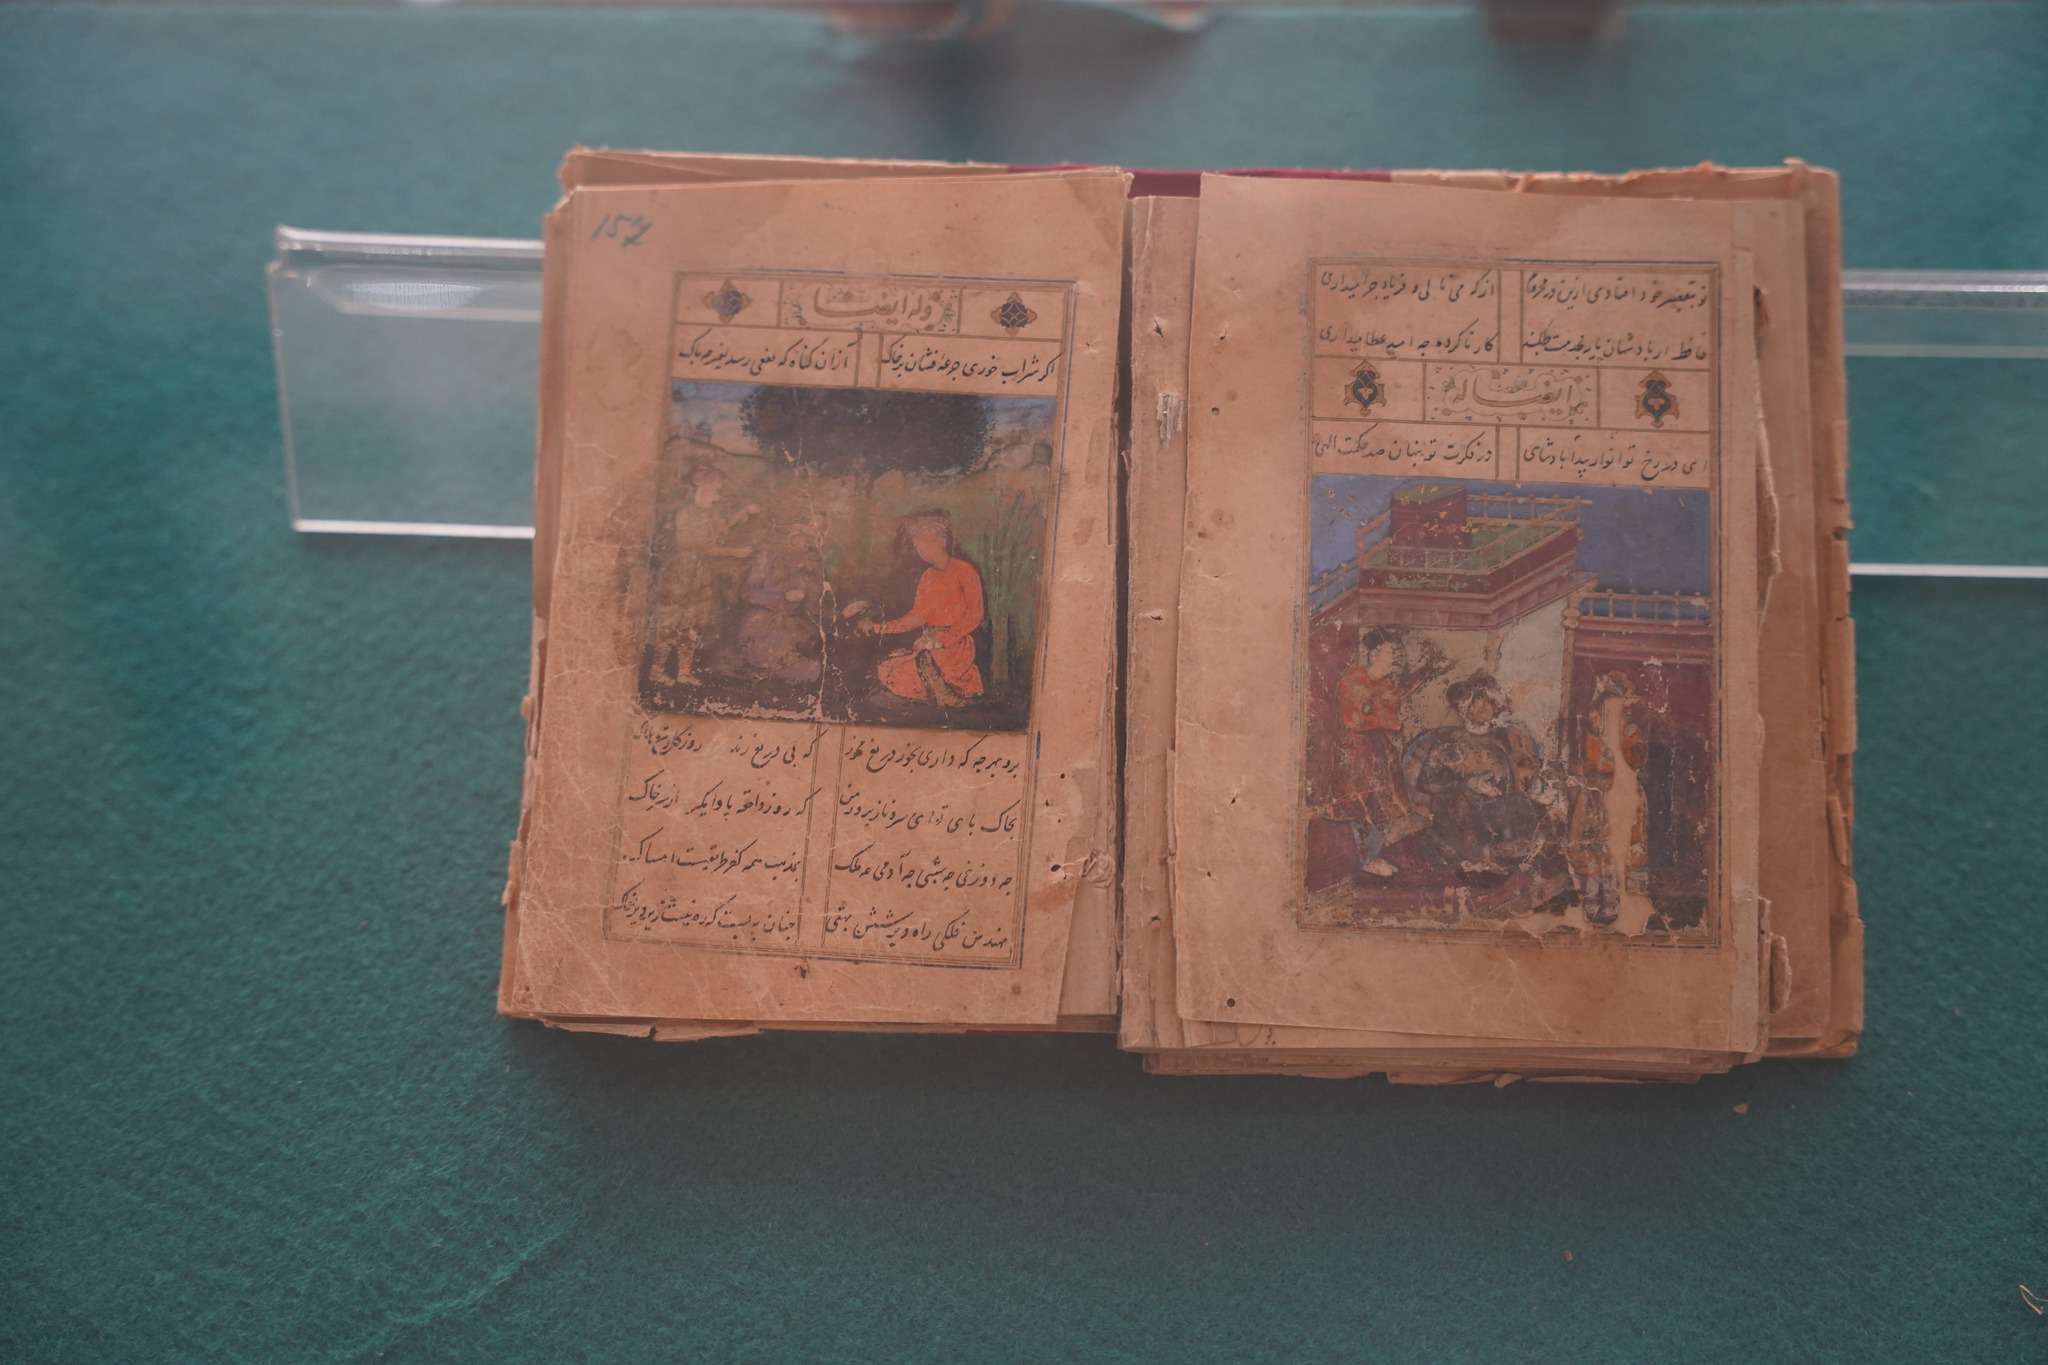 تو بتقصیر خود افتادی ازین در محروم از که می نالی و فریاد چرا میداری
حافظ از بادشاهان پایه بخدمت طلبند کار ناکرده چه امید عطا میداری
ایضا له
ای در رخ تو انوار پیدا بادشاهی در فکرت تو پنهان صد حکمت الهی
152
وله ایضا
اکر شراب خوری جرعه فشان بر خاک از آن کناه که نفعی رسد بغیر چه باک
برو بهرچه که داری بخور دریغ مخور که بی دریغ زند روزکار تیغ
بخاک پای تو ای سرو ناز پرور من که روز واقعه پا وامکیر از سر خاک
چه دوزخی چه بهشتی چه آدمی چه ملک بمذهب همه کفر طریقست امساک
مهندس فلکی راه چنان ببست که ره نیست زیر دیر